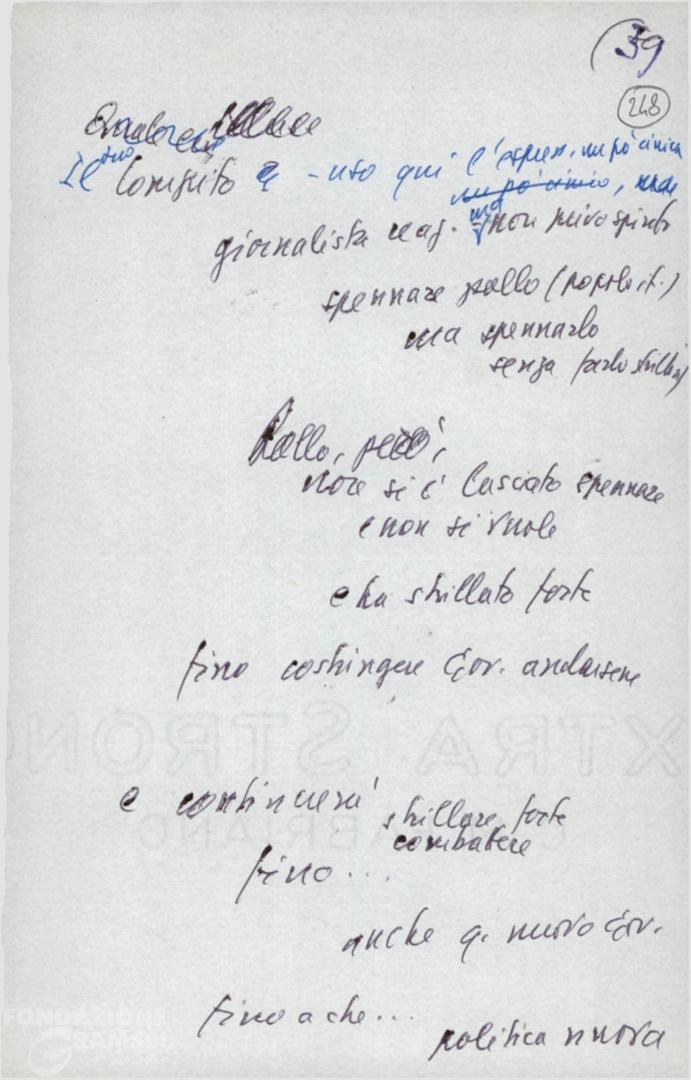 39
248
Il suo Compito è - uso qui l'espress. un po' cinica
un po' cinico, ma
giornalista mag. ma non privo spirito
spennare pollo (popolo it.)
ma spennarlo
senza farlo strillare
Pollo, però,
non si è lasciato spennare
e non si vuole
e ha strillato forte
fino costringere Gov. andarsene
e continuerà
strillare forte
combattere
fino...
anche q. nuovo Gov.
fino a che...
politica nuova
XTRA STRONG
FABRIANO
FONDAZIONE
GRAMSCI